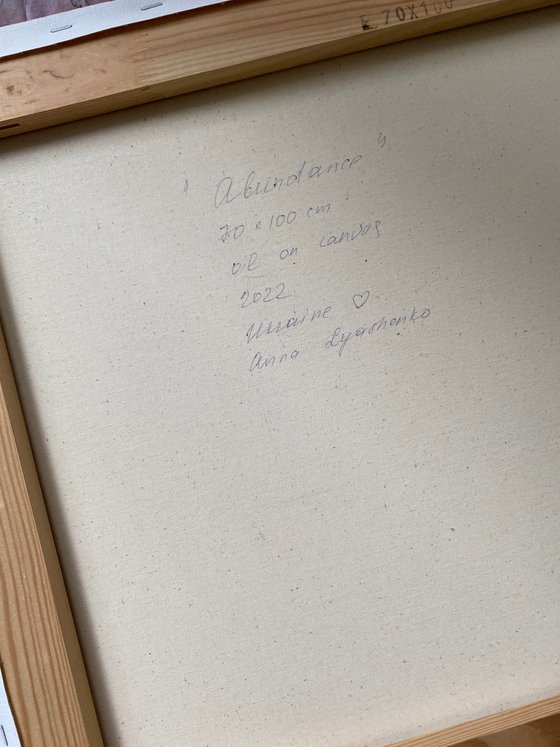 70X100
" Abundance "
70 × 100 cm
oil on canvas
2022
Ukraine ♡
Anna Lyashenko